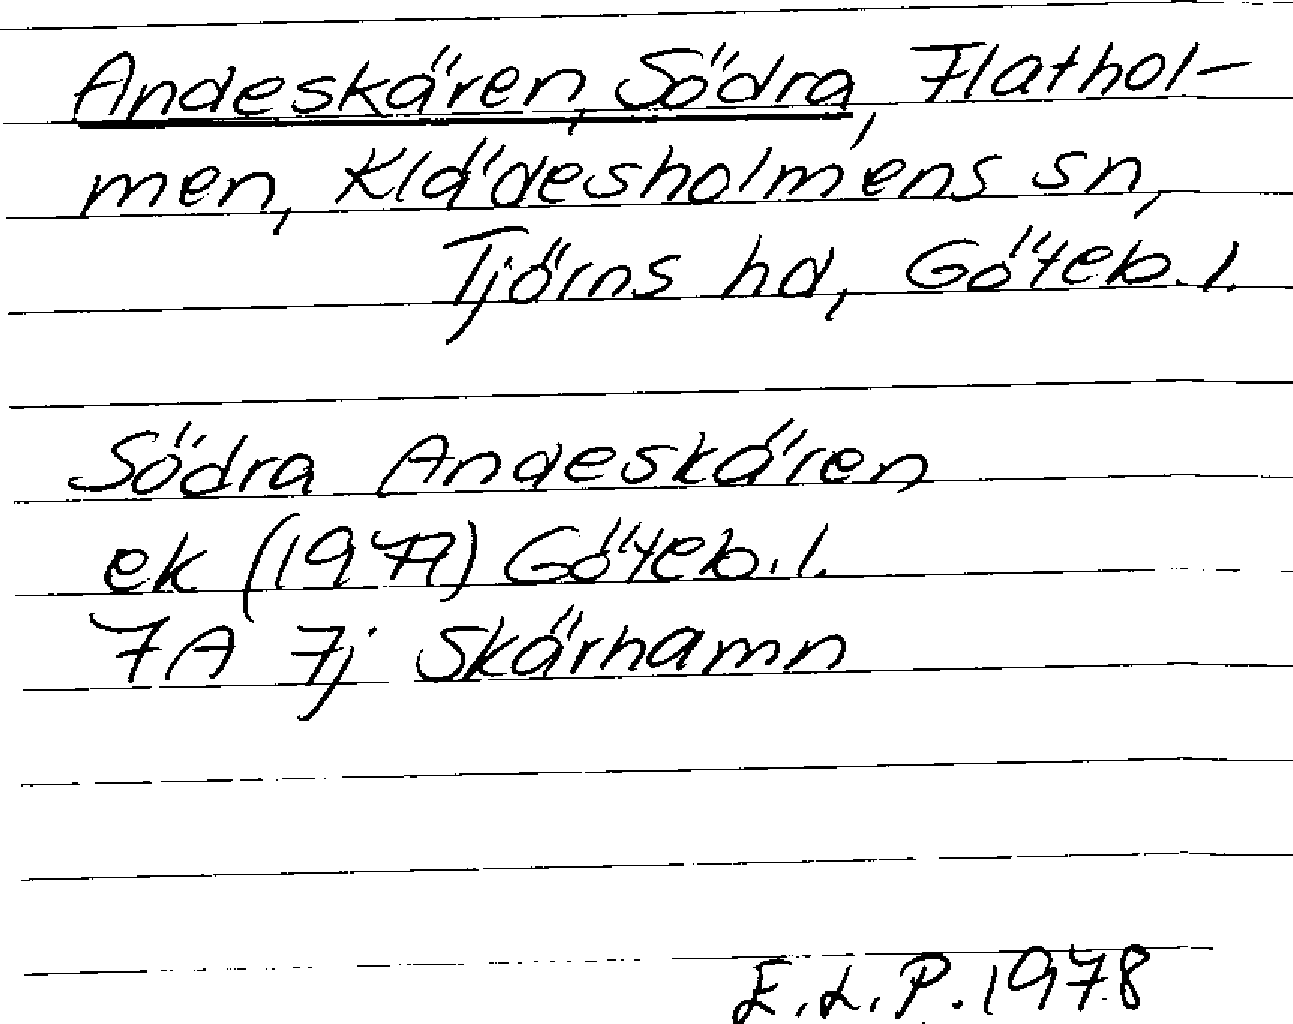 Andeskären, Södra, Flathol-
men, Klädesholmens sn,
Tjörns hd, Göteb. l.
Södra Andeskären
ek (1977) Göteb. l.
7A 7j Skärhamn
E.L.P. 1978